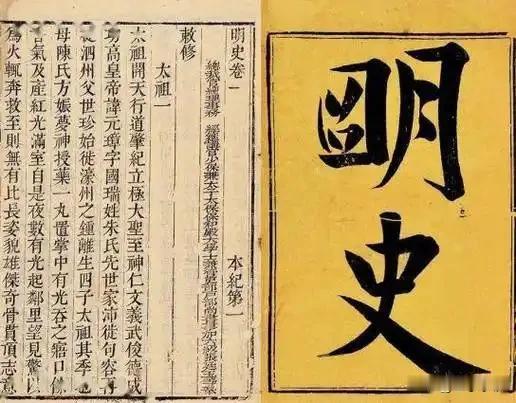 朙史
明史卷一 本紀第一
總裁官總理事務 經筵講官少保兼太子太保保和殿大學士
敕修
太祖一
太祖開天行道肇紀立極大聖至神仁文義武俊德成
功高皇帝諱元璋字國瑞姓朱氏先世家沛徙句容
徙泗州父世珍始徙濠州之鍾離生四子太祖其季也
母陳氏方娠夢神授藥一丸置掌中有光吞之寤口餘
香氣及產紅光滿室自是夜數有光起鄰里望見驚以
為火輒奔救至則無有比長姿貌雄傑奇骨貫頂志意